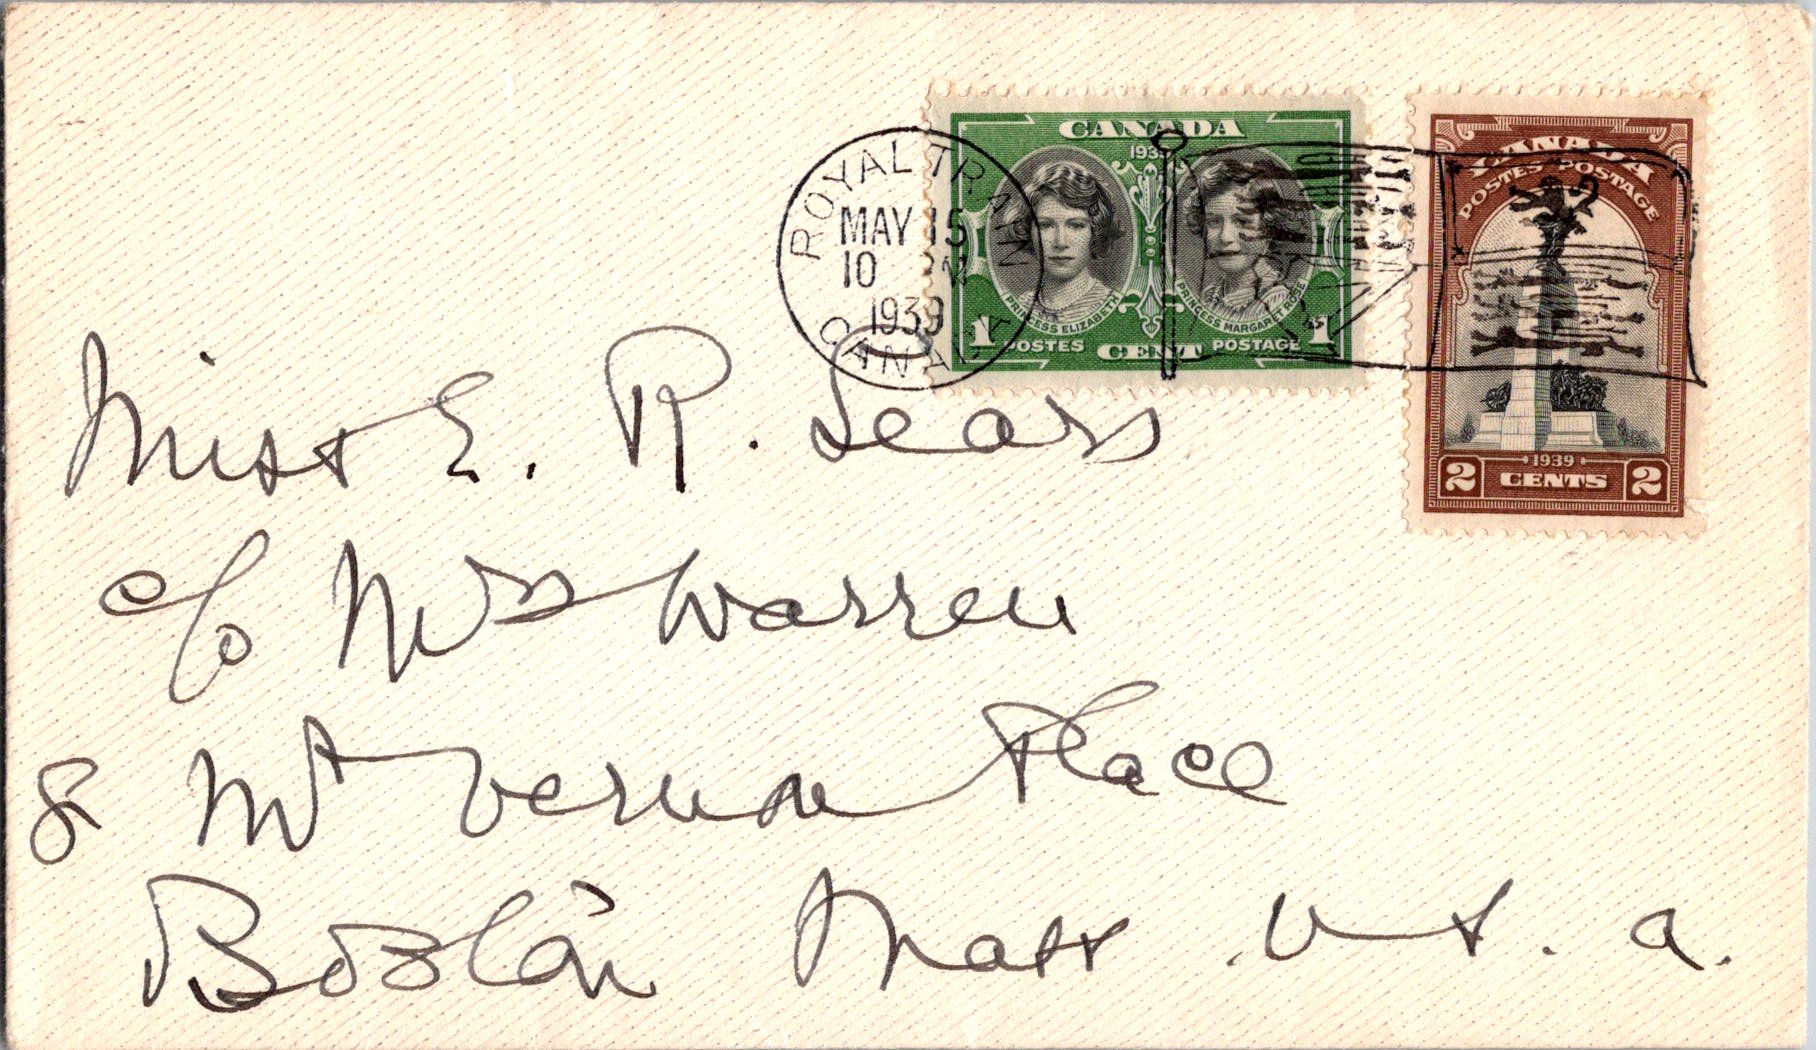 CANADA
1939
PRINCESS ELIZABETH
PRINCESS MARGARET ROSE
1 POSTES CENT POSTAGE 1
CANADA
POSTES POSTAGE
1939
2 CENTS 2
ROYAL TRAIN
MAY 15
10 PM
1939
CANADA
Miss E. R. Sears
c/o Mrs Warren
8 Mt Vernon Place
Boston Mass. U.S.A.